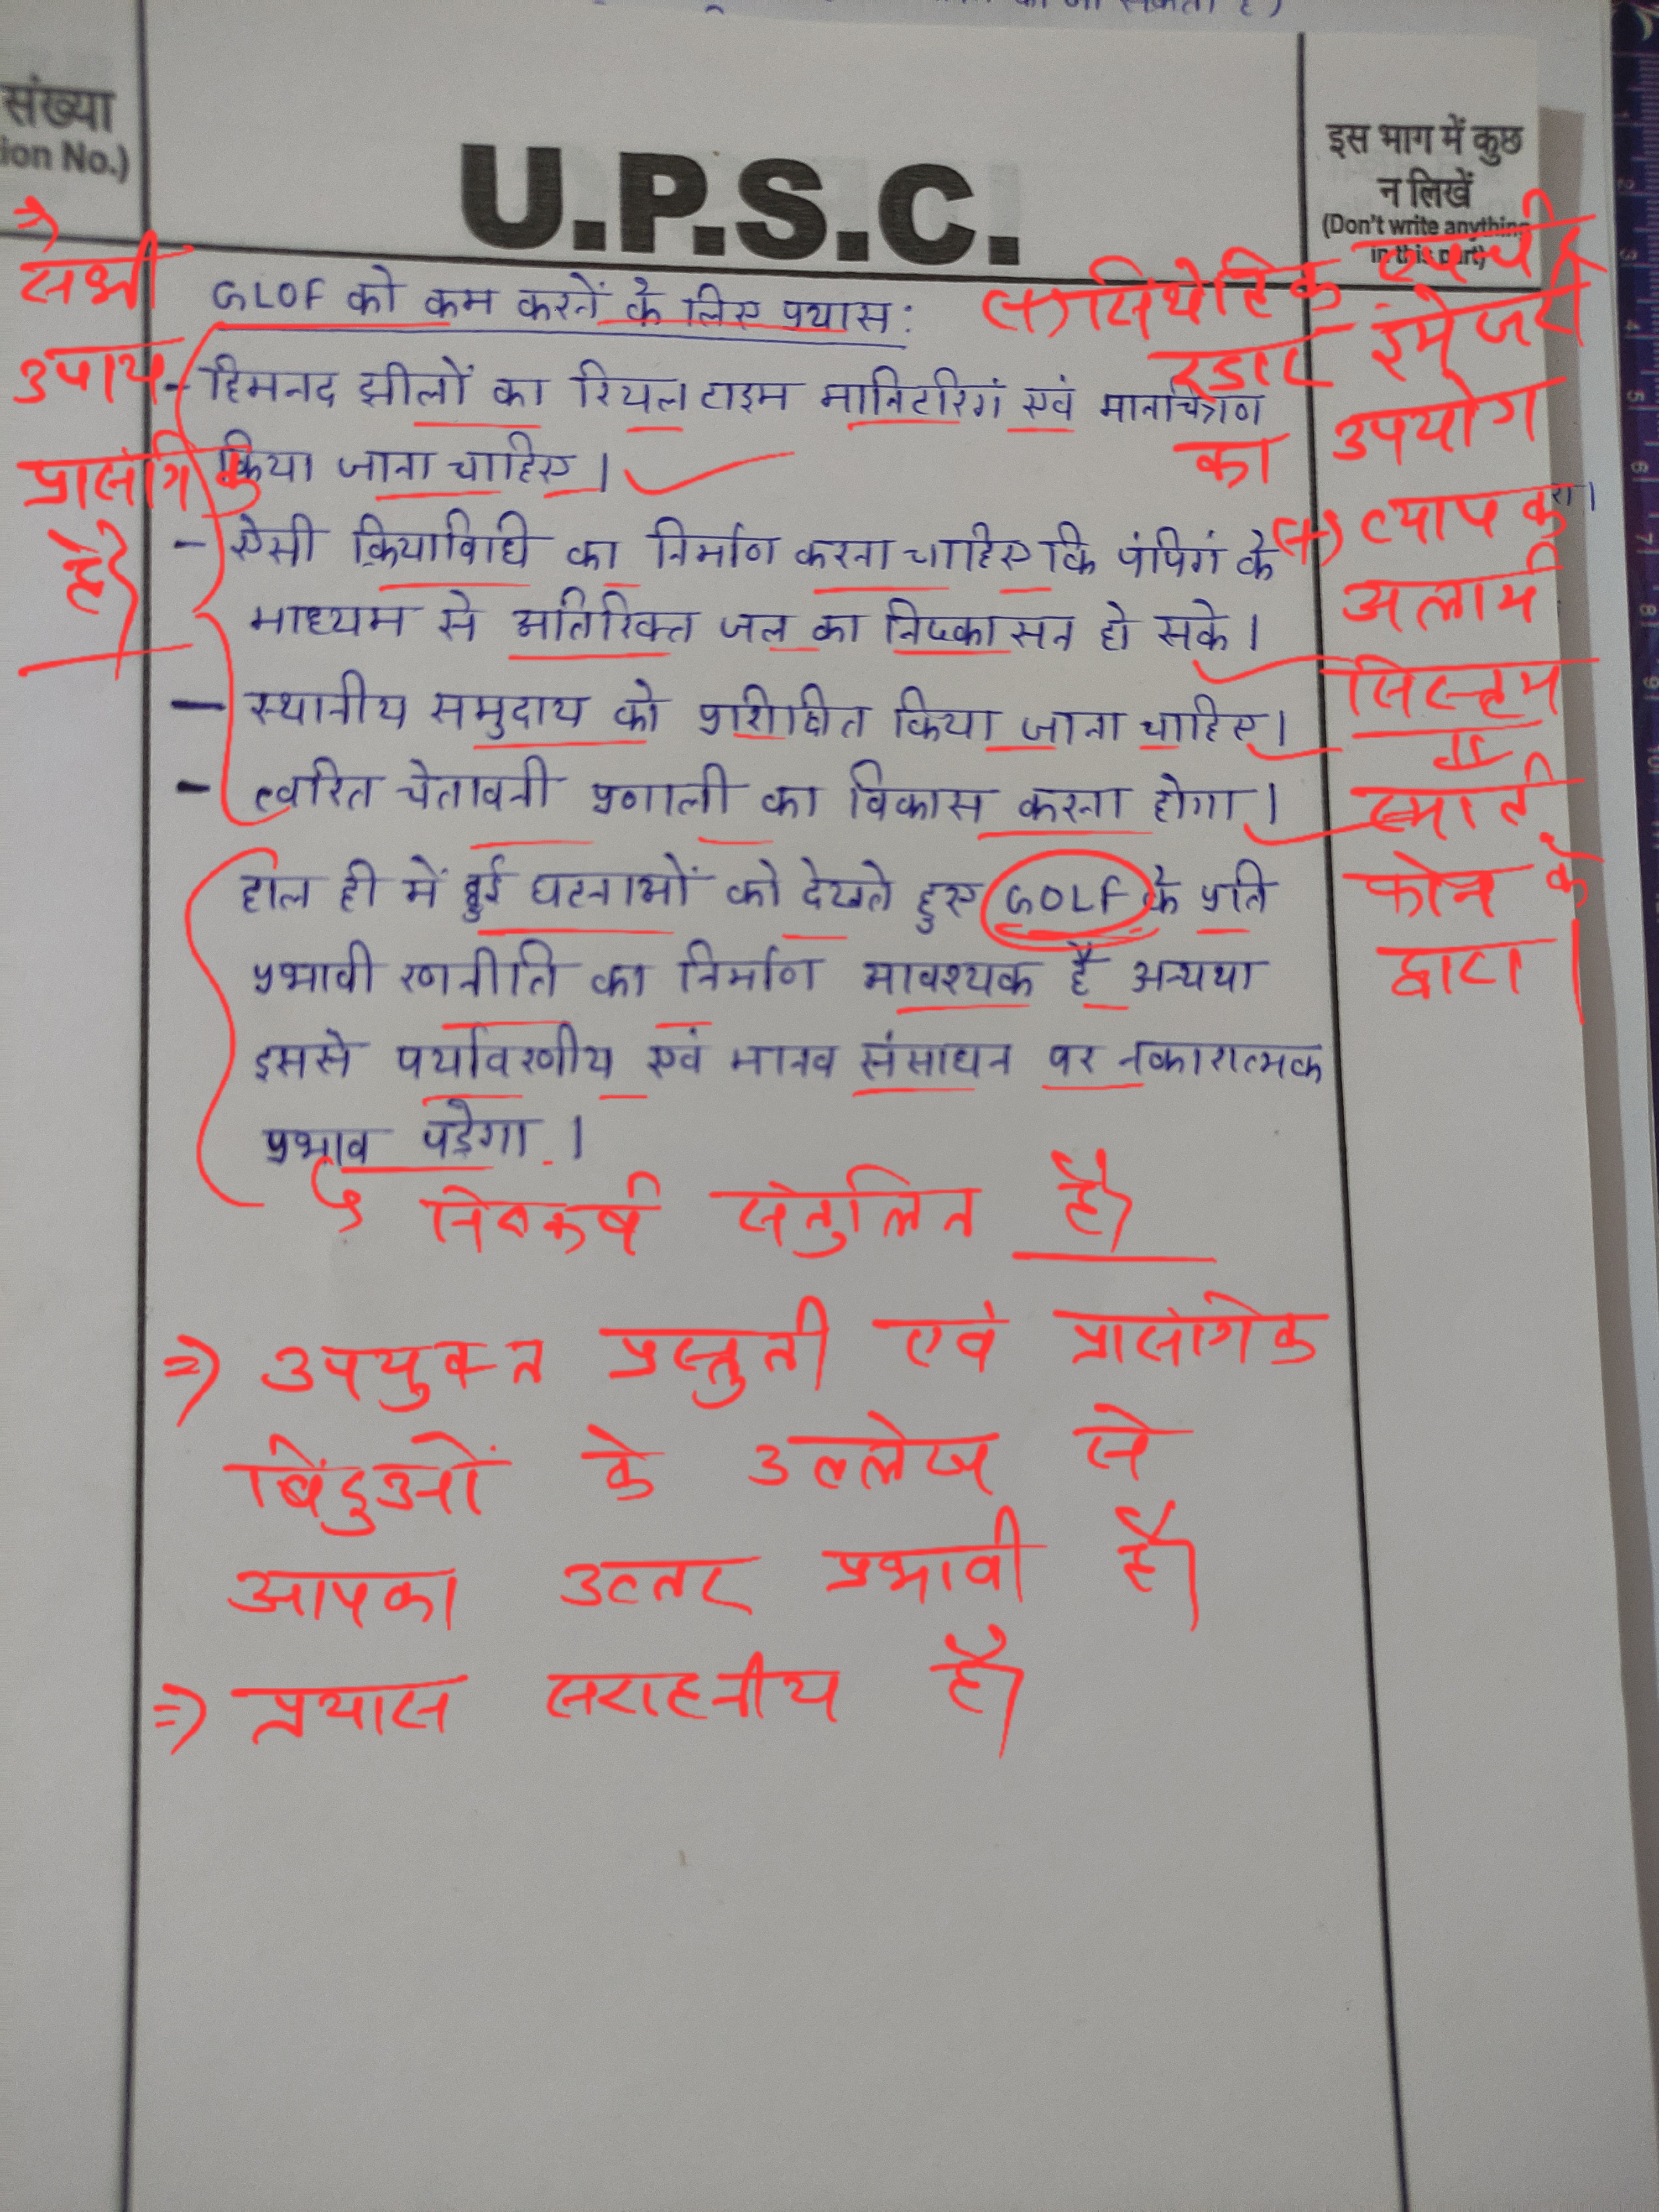 संख्या
ion No.)
U.P.S.C.
इस भाग में कुछ
न लिखें
(Don't write anything
in this part)
⇒
सभी
उपाय
प्रासंगिक
है।
GLOF को कम करनें के लिए प्रयास :
- हिमनद झीलों का रियल टाइम मानिटरिगं एवं मानचित्रण
किया जाना चाहिए।
- ऐसी क्रियाविधि का निर्माण करना चाहिए कि पंपिगं के
माध्यम से अतिरिक्त जल का निष्कासन हो सके।
- स्थानीय समुदाय को प्रशिक्षित किया जाना चाहिए।
- त्वरित चेतावनी प्रणाली का विकास करना होगा।
हाल ही में हुई घटनाओं को देखते हुए GOLF के प्रति
प्रभावी रणनीति का निर्माण आवश्यक है अन्यथा
इससे पर्यावरणीय एवं मानव संसाधन पर नकारात्मक
प्रभाव पड़ेगा।
(+) सिंथेटिक एपर्चर
रडार इमेजरी
का उपयोग
(+) व्यापक
अलार्म
सिस्टम
स्मार्ट
फोन के
द्वारा।
निष्कर्ष संतुलित है।
⇒ उपयुक्त प्रस्तुती एवं प्रासंगिक
बिंदुओं के उल्लेख से
आपका उत्तर प्रभावी है।
⇒ प्रयास सराहनीय है।